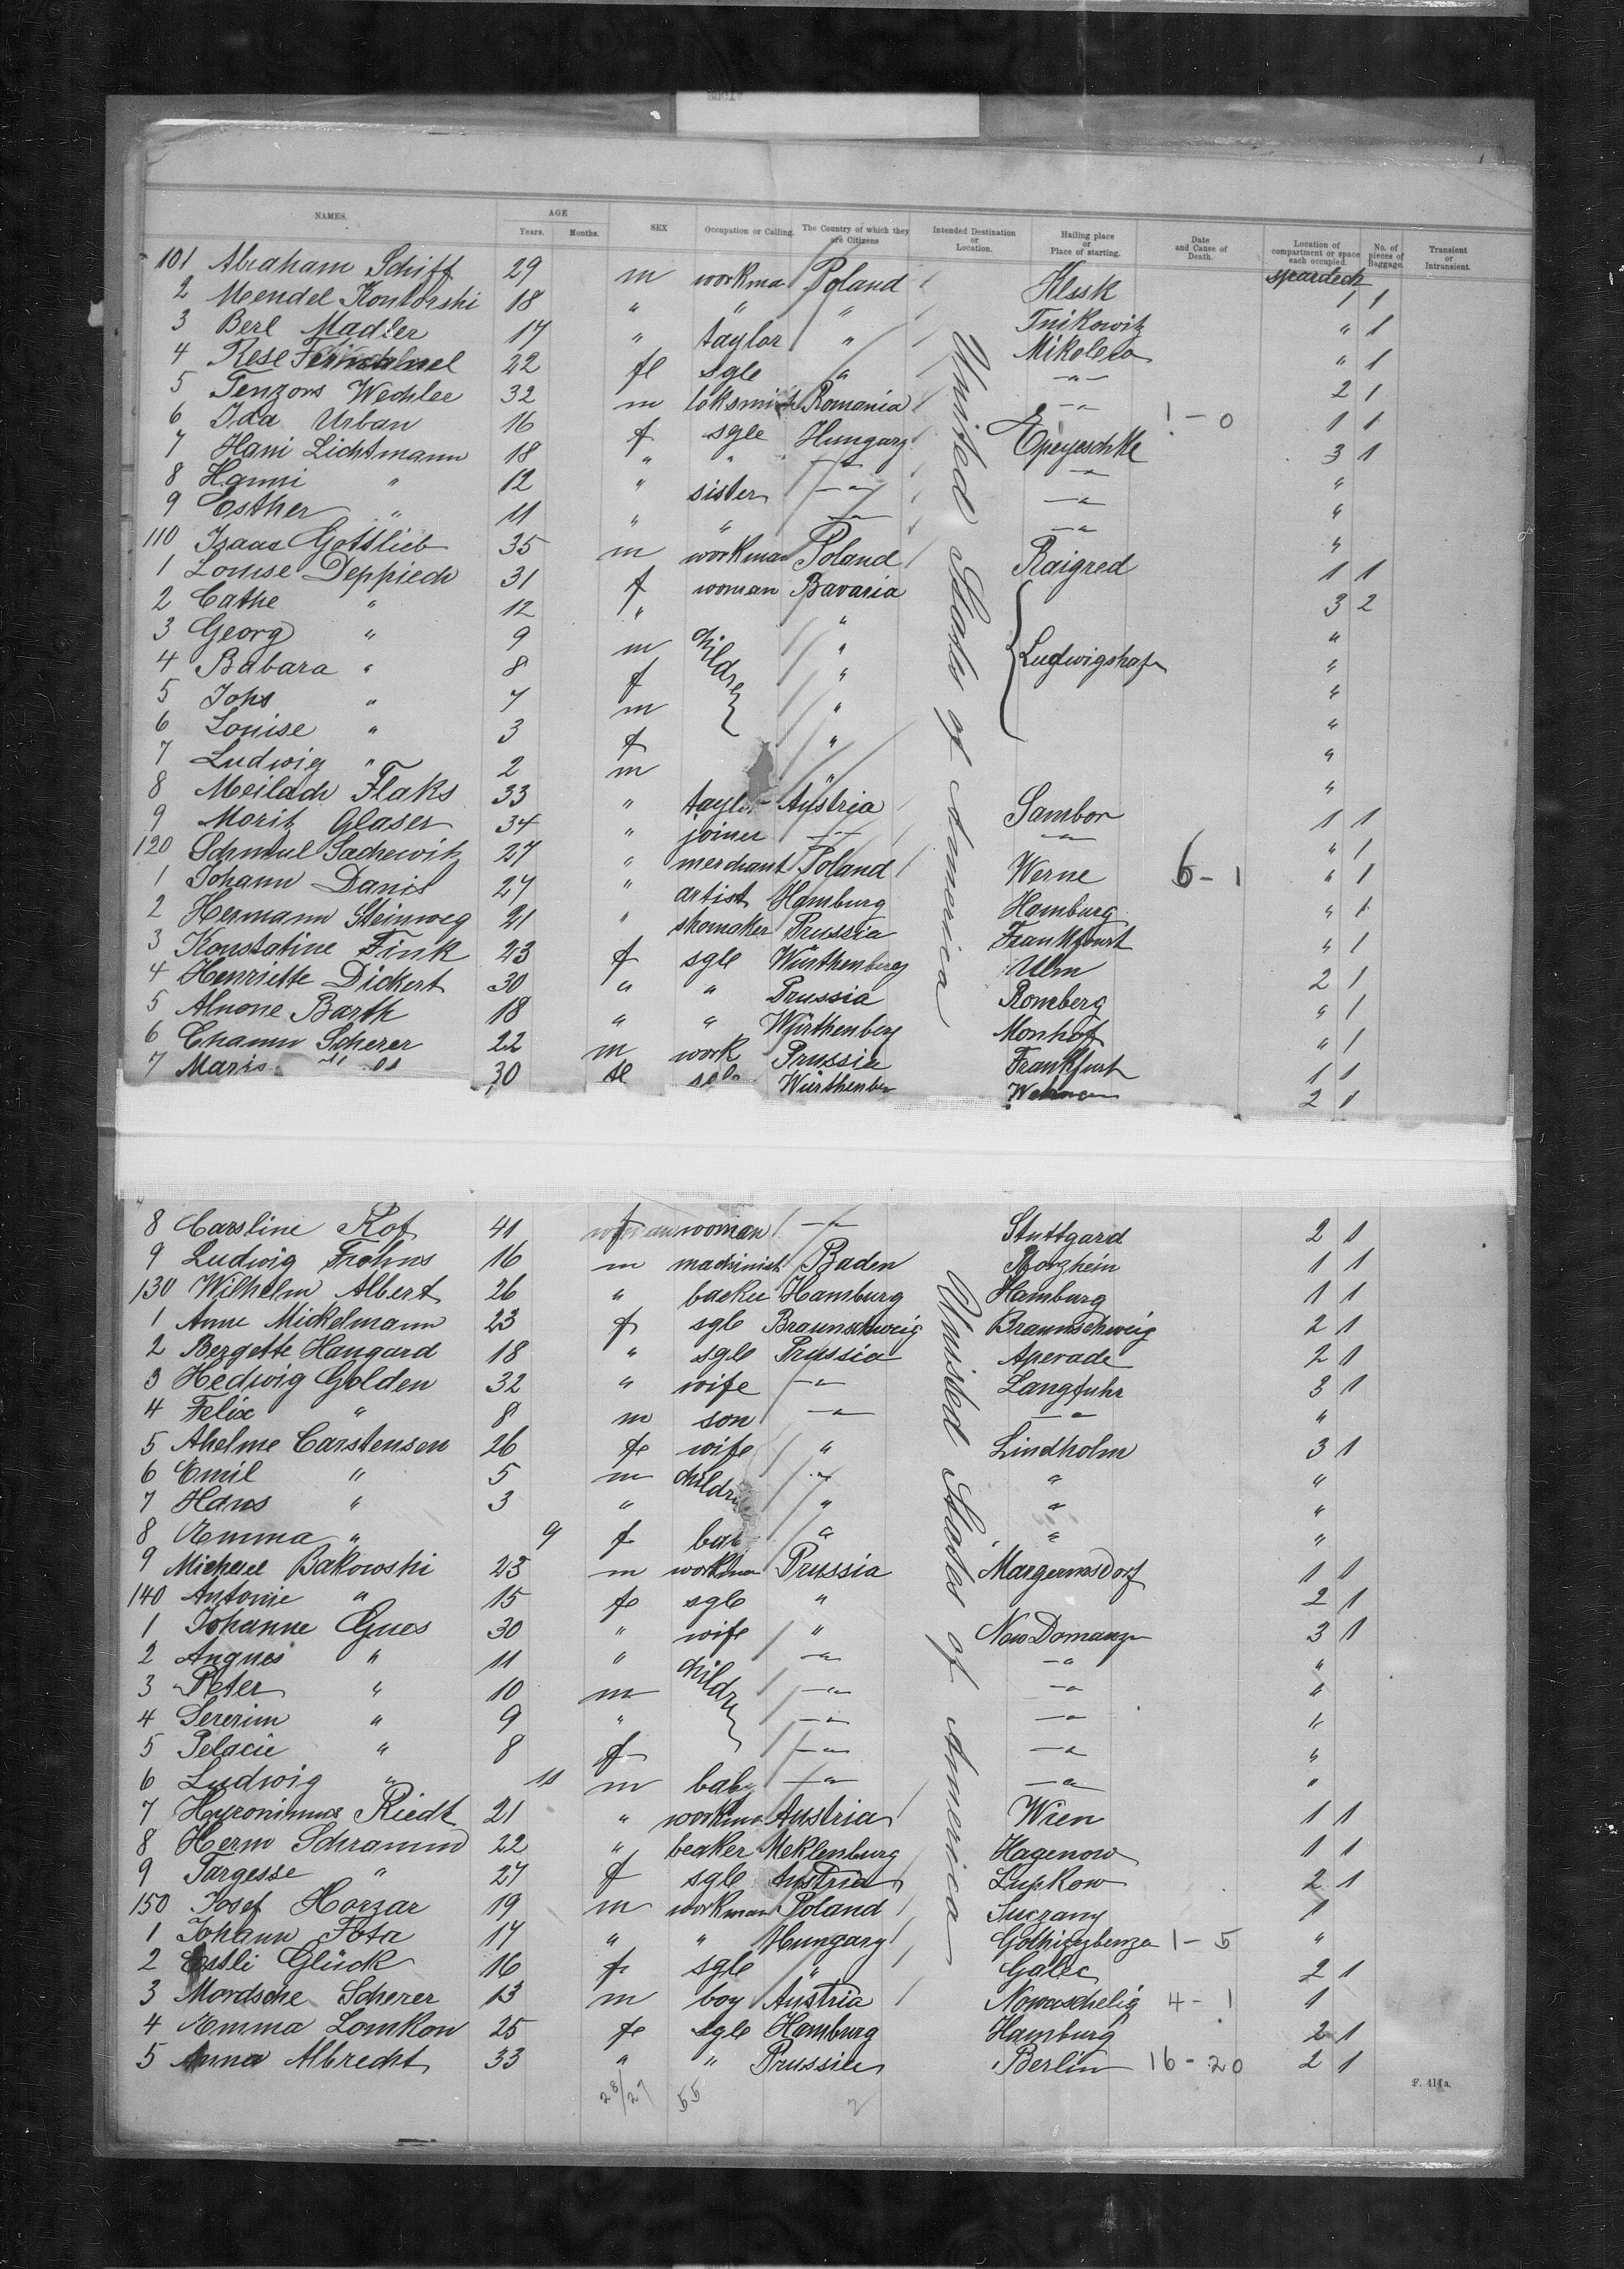 NAMES. AGE Years. Months. SEX Occupation or Calling. The Country of which they are Citizens Intended Destination or Location. Hailing place or Place of starting. Date and Cause of Death. Location of compartment or space each occupied. No. of pieces of Baggage. Transient or Intransient.
101 Abraham Schiff 29 m workma Poland Hlssk
2 Mendel Kontorski 18 " " " 1 1
3 Berl Madler 17 " taylor " " 1
4 Rese 22 fe sgle " " 1
5 Wechler 32 m Romania 2 1
6 Ida Urban 16 f sgle Hungary 1 - 0 1 1
7 Hani Lichtmann 18 " " 3 1
8 Hanni " 12 " sister "
9 Esther " 11 " " "
110 Isaac Gottlieb 35 m workman Poland Raigred "
1 Louise Deppiech 31 f woman Bavaria 1 1
2 Cathe " 12 " " 3 2
3 Georg " 9 m children " Ludwigshafn "
4 Babara " 8 f " "
5 Johs " 7 m " "
6 Louise " 3 f " "
7 Ludwig " 2 m " "
8 Meilach Flaks 33 " taylor Austria Sambor "
9 Morit Glaser 34 " joiner 1 1
120 Schmul Sachewitz 27 " merchant Poland Werne 6 - 1 " 1
1 Johann Daniel 27 " artist Hamburg Hamburg " 1
2 Hermann Steinweg 21 " shomaker Prussia Frankfurt " 1
3 Konstatine Fink 23 f sgle Würthenberg Ulm " 1
4 Henriette Dickert 30 " " Prussia Romberg 2 1
5 Alwone Barth 18 " " Würthenberg Monhof " 1
6 Chamm Scherer 22 m work Prussia Frankfurt " 1
7 Marie 30 fe Würthenber 2 1
United States of America
8 Carsline Rof 41 f woman Stuttgard 2 1
9 Ludwig Frohns 16 m machinist Baden 1 1
130 Wilhelm Albert 26 " backer Hamburg Hamburg 1 1
1 Anne Mickelmann 23 f sgle Braunschweig Braunschweig 2 1
2 Bergette Haugard 18 " sgle Prussia Aperade 2 1
3 Hedwig Golden 32 " wife Langfuhr 3 1
4 Felix " 8 m son "
5 Ahelme Carstensen 26 fe wife " Lindholm 3 1
6 Emil " 5 m children " " "
7 Hans " 3 " " " "
8 Emma " 9 f " " "
9 Michael Bakowski 23 m workma Prussia 1 1
140 Antonie " 15 fe sgle " 2 1
1 Johanne Gues 30 " wife " 3 1
2 Angnes " 11 " children "
3 Peter " 10 m "
4 Sererim " 9 " "
5 Pelacie " 8 f "
6 Ludwig " 11 m baby "
7 Hyronimus Riedt 21 " workma Austria Wien 1 1
8 Herm Schramm 22 " beaker Meklenburg Hagenow 1 1
9 Targesse " 27 f sgle Austria Lupkow 2 1
150 Josef Horzar 19 m workman Poland 1
1 Johann Fota 17 " " Hungary 1 - 5 "
2 Glück 16 f sgle " Galec 2 1
3 Mordsche Scherer 13 m boy Austria Nowaschelig 4 - 1 1
4 Emma Lomkow 25 fe sgle Hamburg Hamburg 2 1
5 Anna Albrecht 33 " " Prussia Berlin 16 - 20 2 1
United States of America
28/27 55 2
F. 414a.